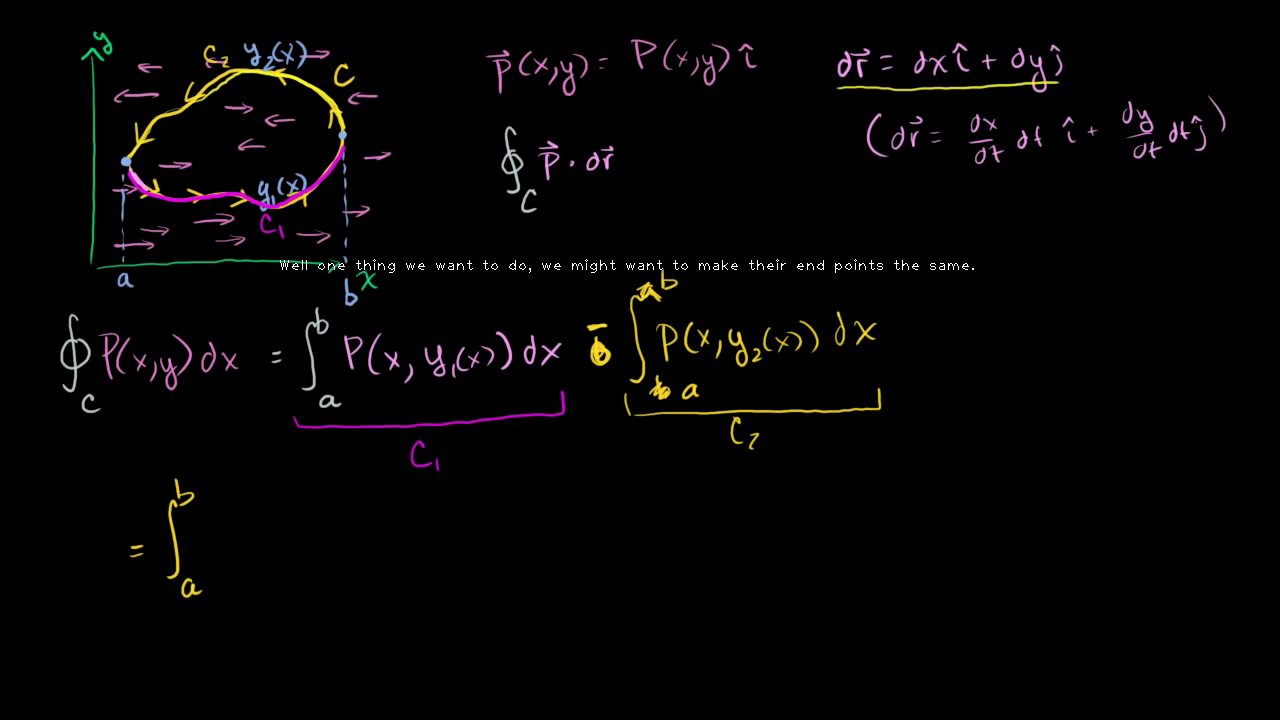 y
C₂ y₂(x)
C
y₁(x)
C₁
a
b
x
P⃗(x,y) = P(x,y) î
dr⃗ = dx î + dy ĵ
(dr⃗ = dx/dt dt î + dy/dt dt ĵ)
∮_C P⃗ · dr⃗
Well one thing we want to do, we might want to make their end points the same.
∮_C P(x,y) dx = ∫_a^b P(x, y₁(x)) dx - ∫_a^b P(x, y₂(x)) dx
C₁
C₂
= ∫_a^b